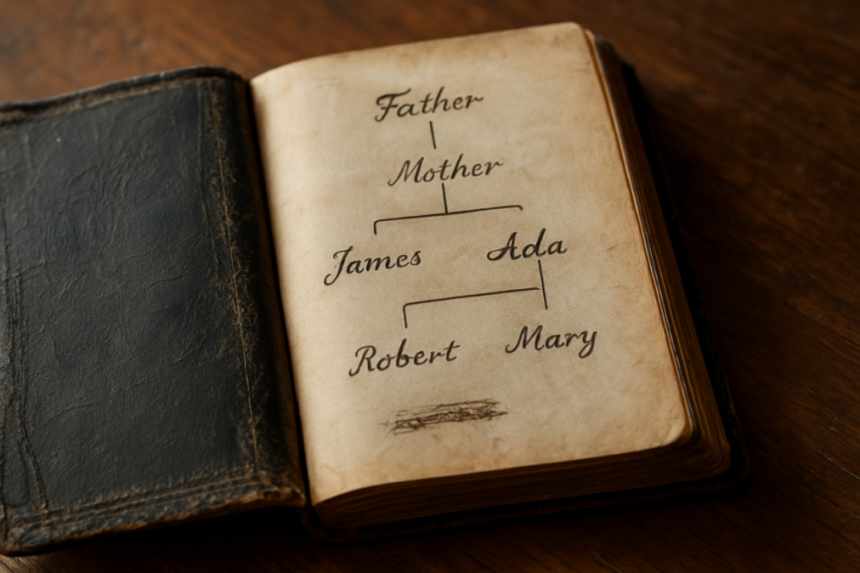 Father
Mother
James Ada
Robert Mary